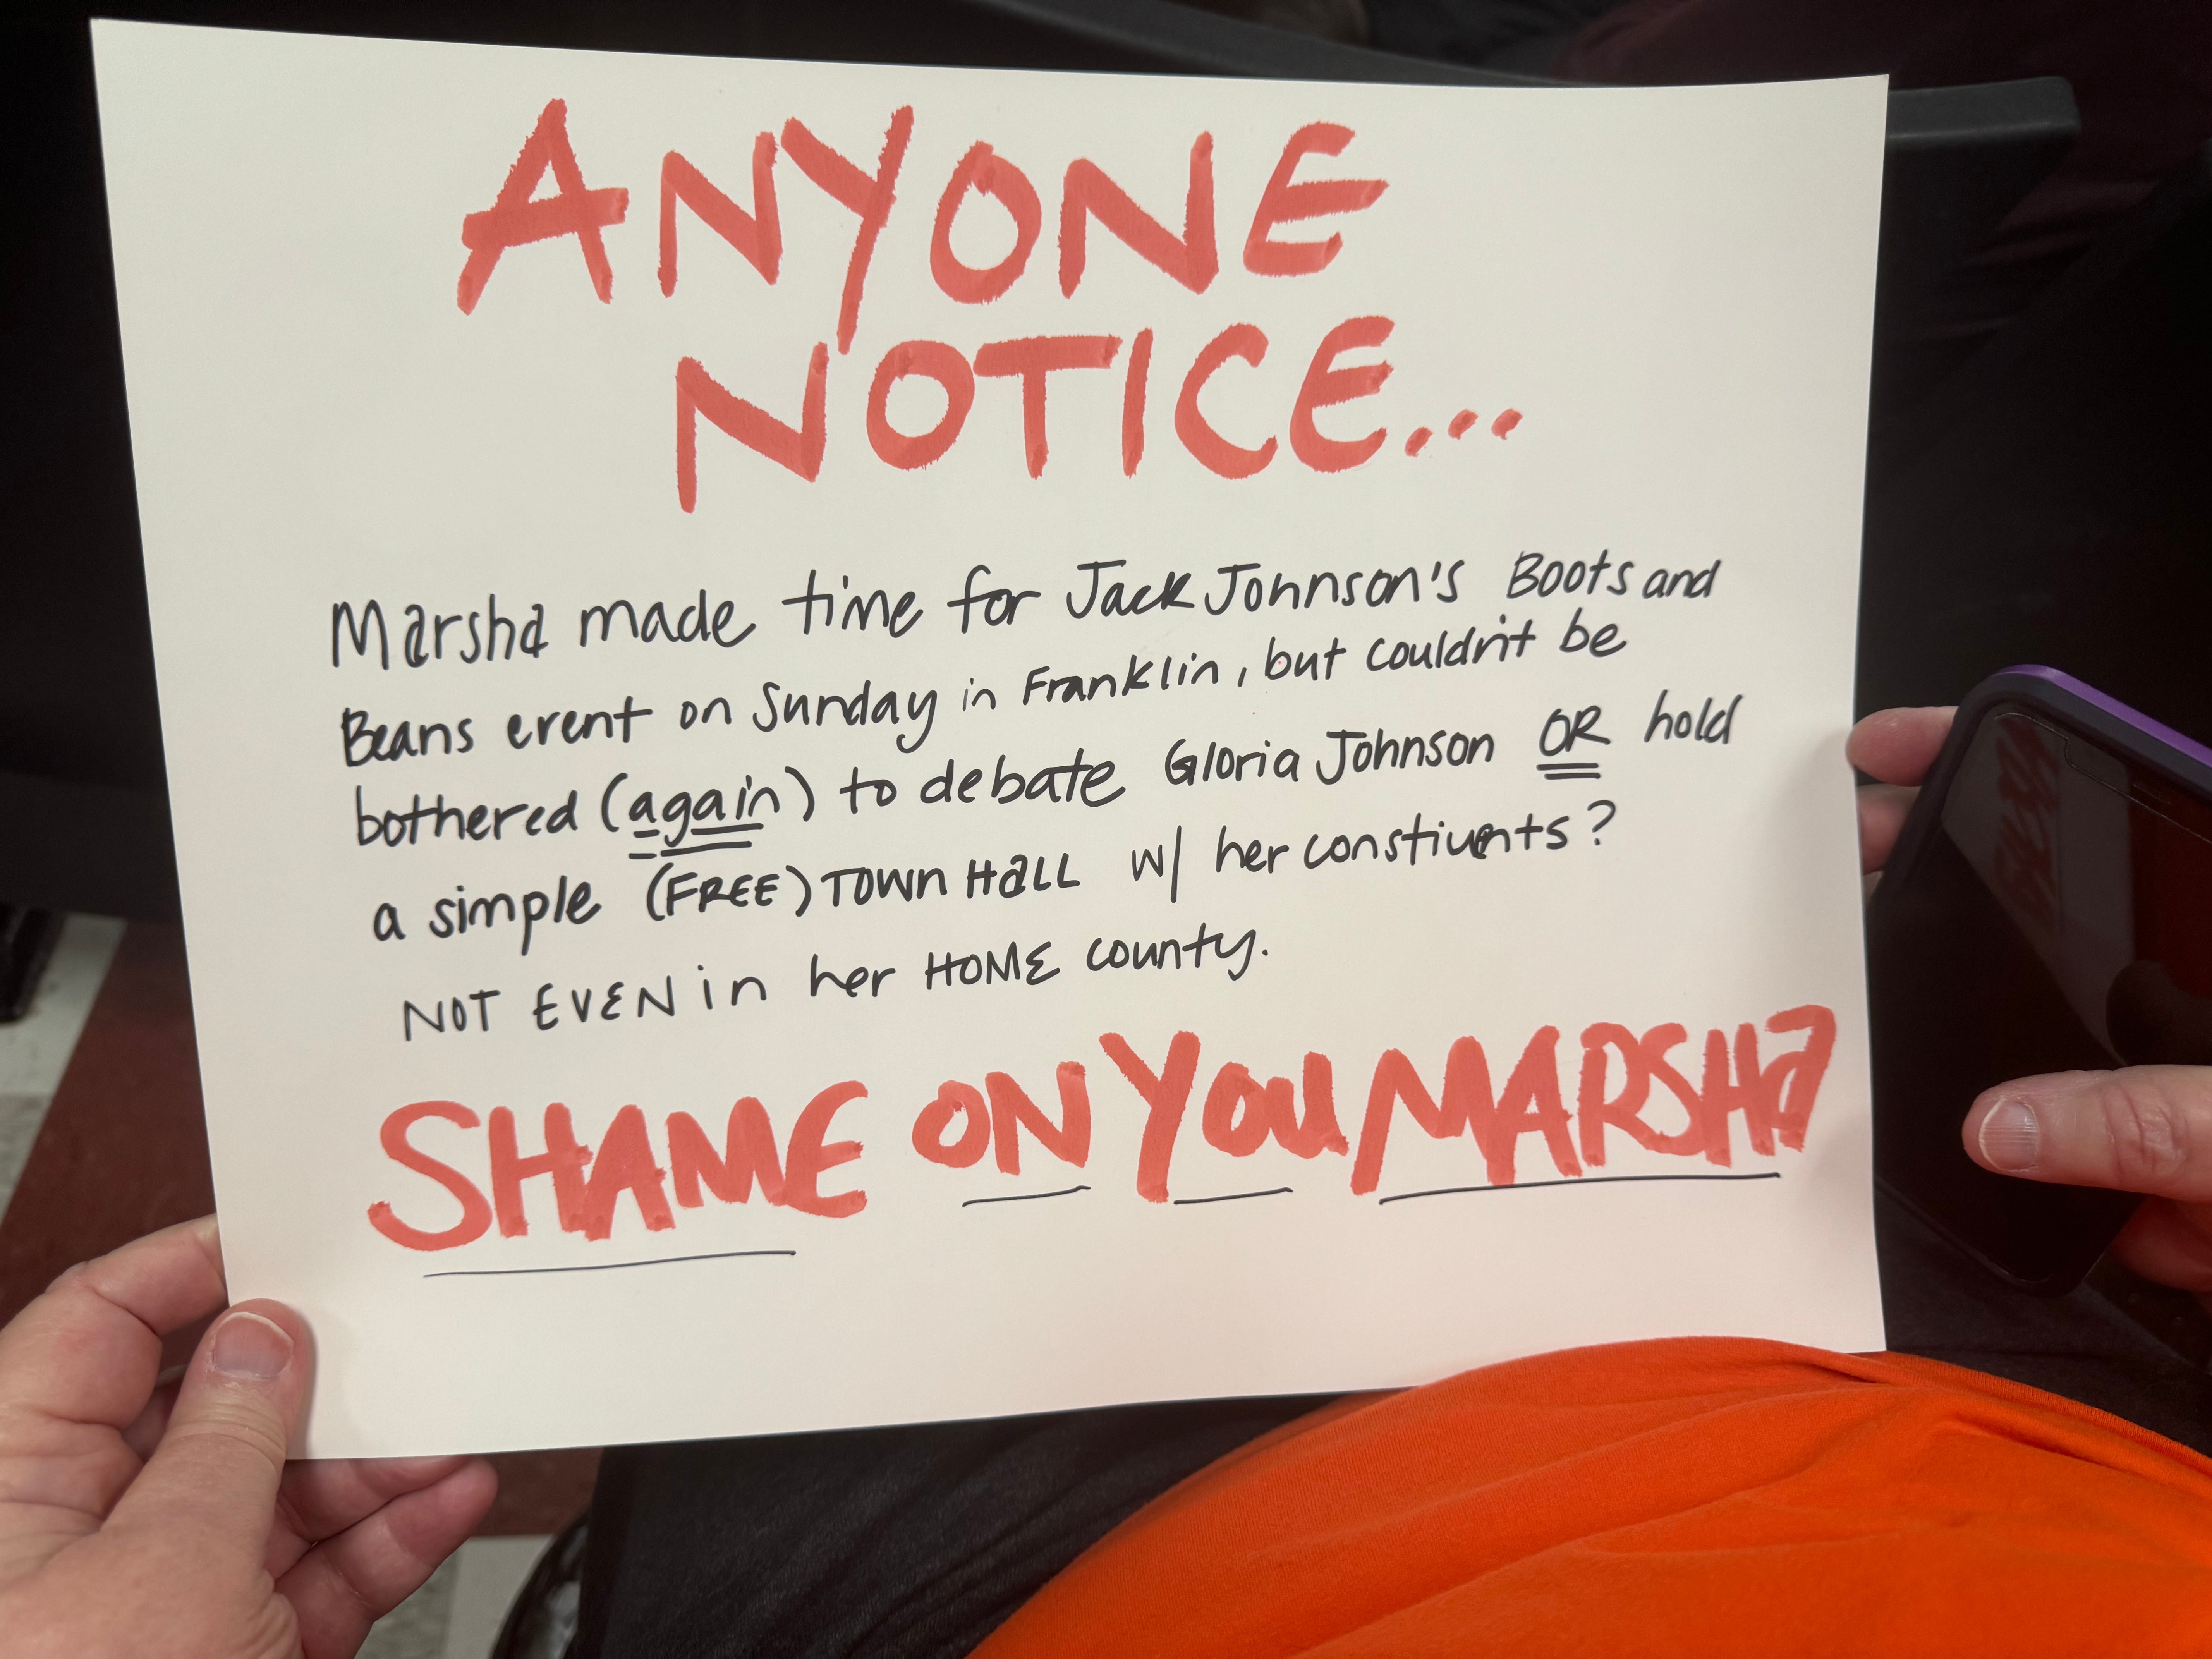 ANYONE
NOTICE...
Marsha made time for Jack Johnson's Boots and
Beans event on Sunday in Franklin, but couldn't be
bothered (again) to debate Gloria Johnson OR hold
a simple (FREE) TOWN HALL w/ her constiuents?
NOT EVEN in her HOME county.
SHAME ON YOU MARSHA